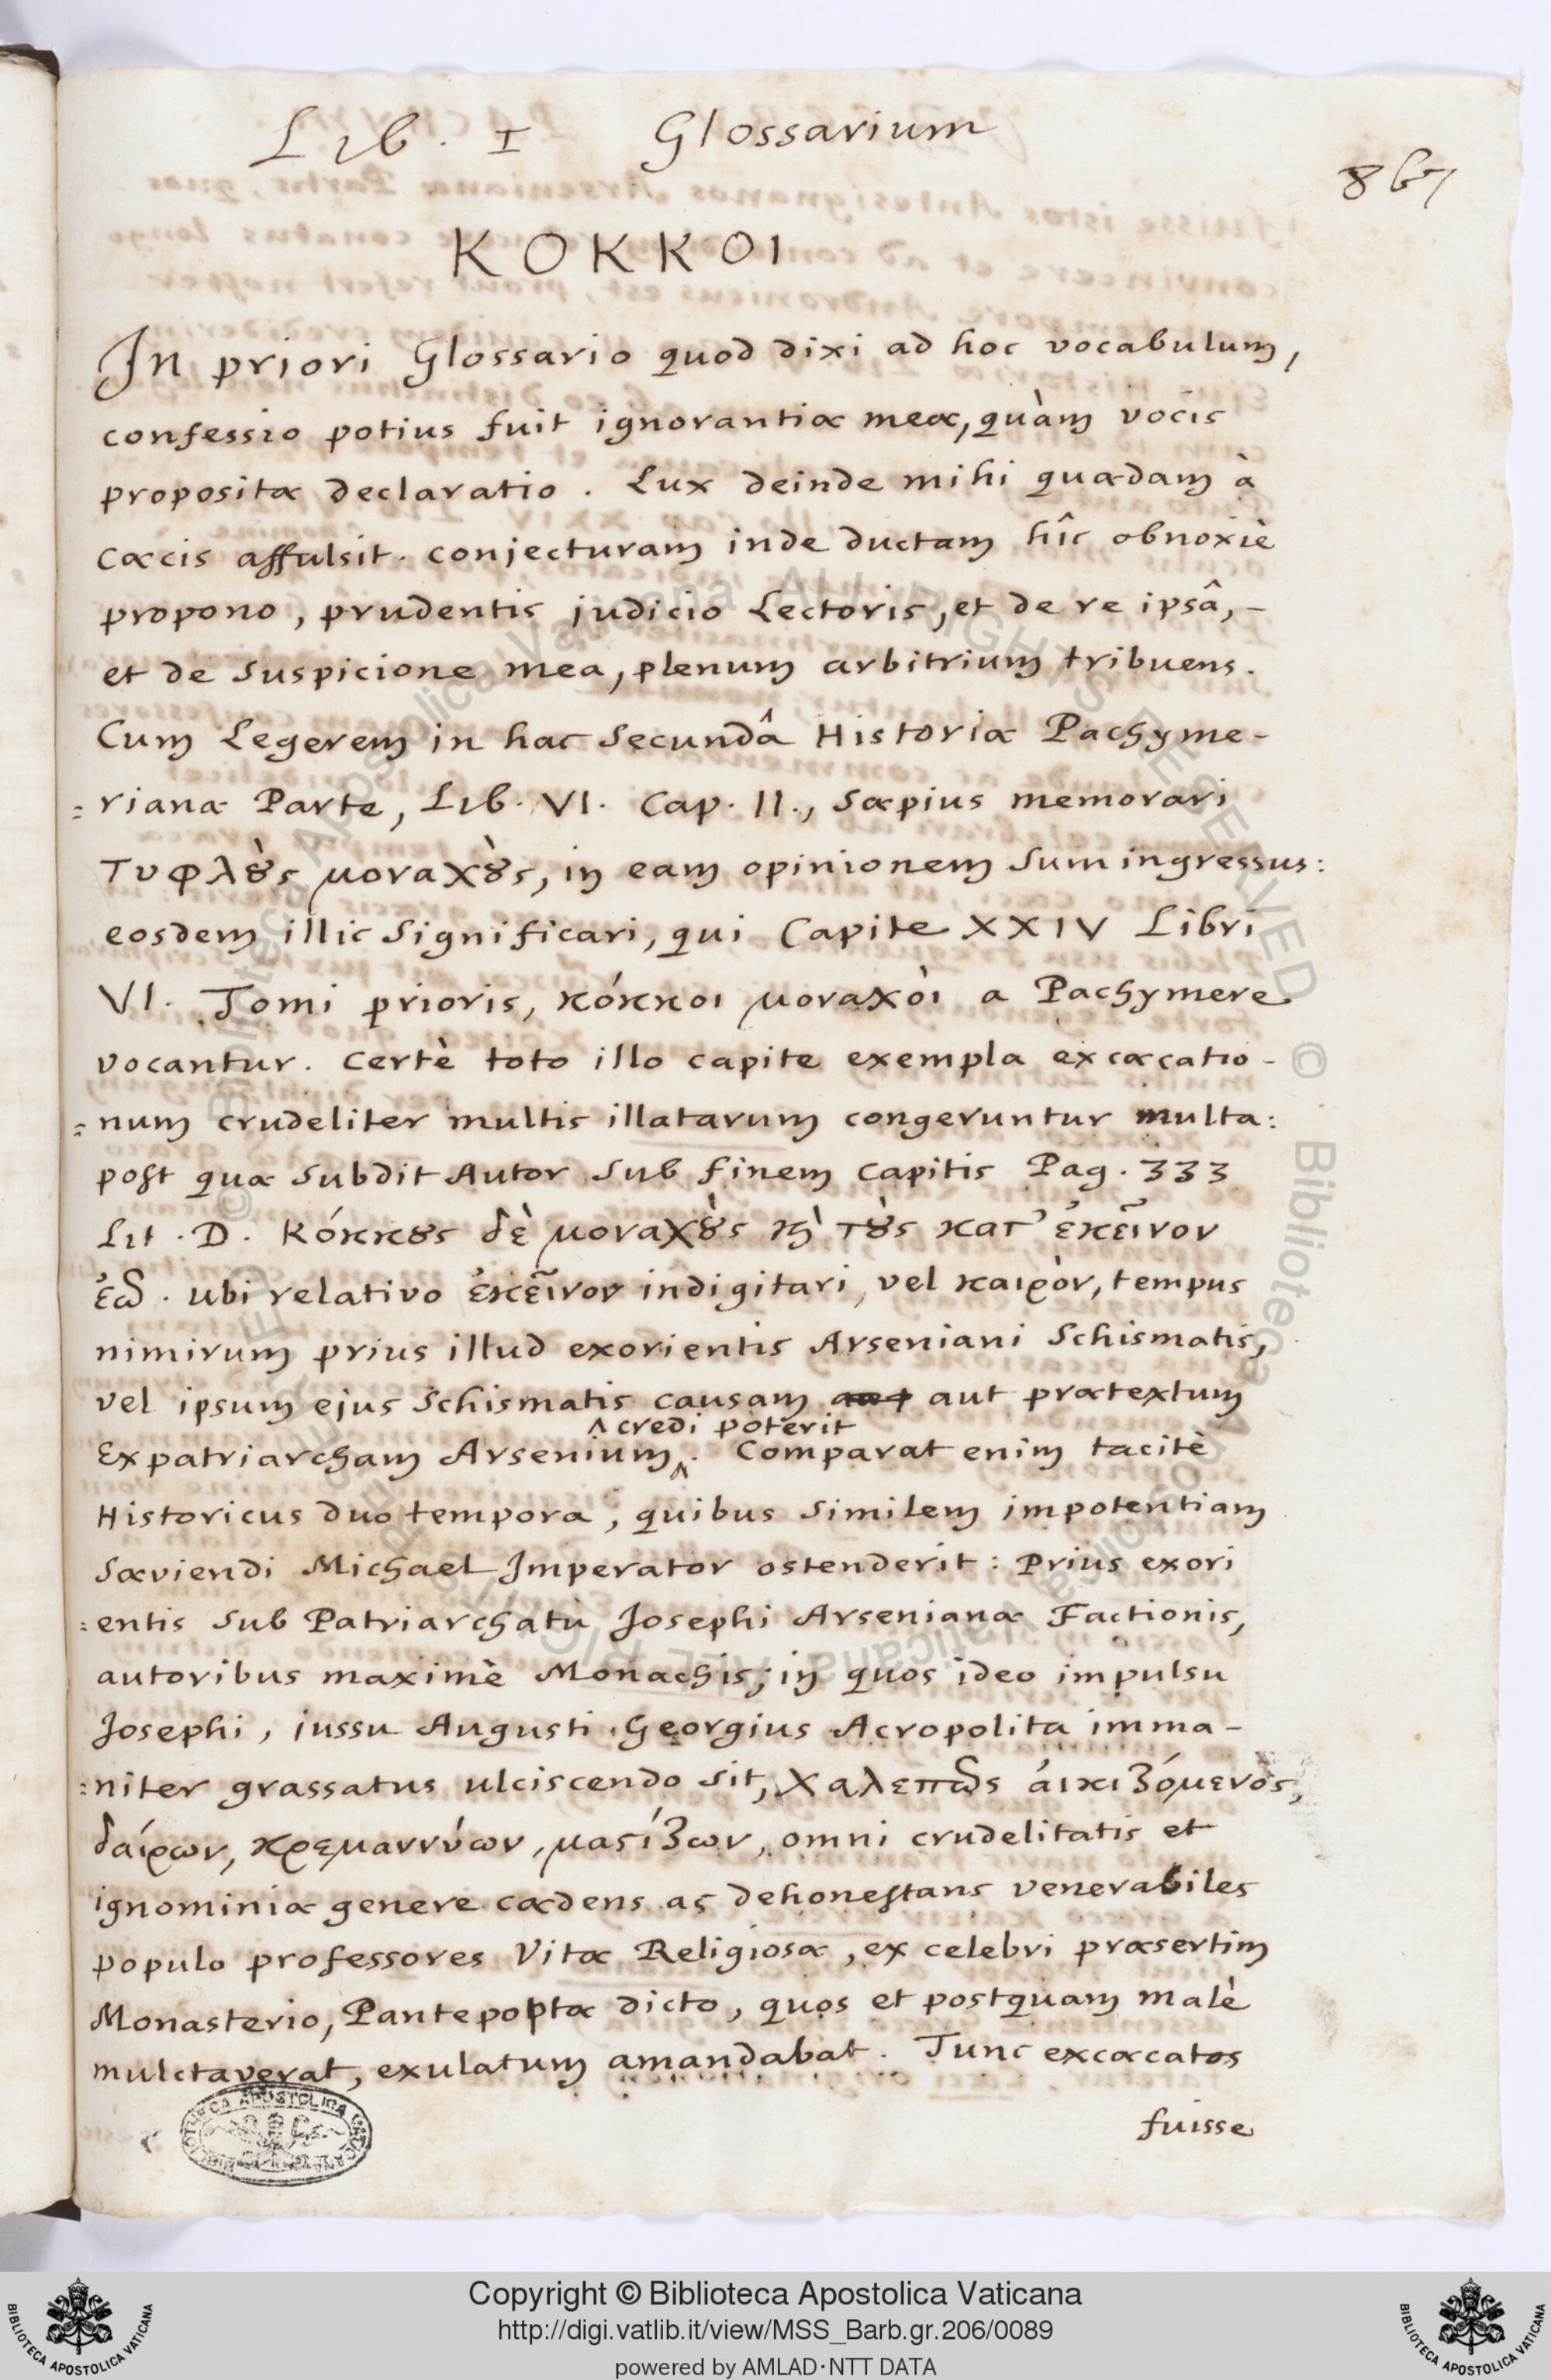 Lib. I Glossarium
867
ΚΟΚΚΟΙ
In priori Glossario quod dixi ad hoc vocabulum,
confessio potius fuit ignorantiæ meæ, quàm vocis
propositæ declaratio. Lux deinde mihi quædam à
cæcis affulsit. conjecturam inde ductam hîc obnoxiè
propono, prudentis judicio Lectoris, et de re ipsâ, -
et de suspicione mea, plenum arbitrium tribuens.
Cum Legerem in hac secundâ Historiæ Pachyme-
=rianæ Parte, Lib. VI. Cap. II., sæpius memorari
τυφλȣ̀ς μοναχȣ̀ς, in eam opinionem sum ingressus:
eosdem illic significari, qui Capite XXIV Libri
VI. Tomi prioris, κόκκοι μοναχὸι a Pachymere
vocantur. Certè toto illo capite exempla excæcatio-
=num crudeliter multis illatarum congeruntur multa:
post quæ subdit Autor sub finem capitis Pag. 333
Lit. D. Κόκκȣς δὲ μοναχȣ̀ς κ̀ τȣ̀ς κατ' ἐκεῖνον
ἐῶ. ubi relativo ἐκεῖνον indigitari, vel καιρὸν, tempus
nimirum prius illud exorientis Arseniani Schismatis,
vel ipsum ejus Schismatis causam aut prætextum
credi poterit
Expatriarcham Arsenium. Comparat enim tacitè
Historicus duo tempora, quibus similem impotentiam
sæviendi Michael Imperator ostenderit: Prius exori
=entis sub Patriarchatu Josephi Arsenianæ Factionis,
autoribus maximè Monachis; in quos ideo impulsu
Josephi, iussu Augusti Georgius Acropolita imma-
=niter grassatus ulciscendo sit, χαλεπῶς ἀικιζόμενος,
δαίρων, κρεμαννύων, μαϛίζων, omni crudelitatis et
ignominiæ genere cædens ac dehonestans venerabiles
populo professores Vitæ Religiosæ, ex celebri præsertim
Monasterio, Pantepoptæ dicto, quos et postquam malè
mulctaverat, exulatum amandabat. Tunc excæcatos
fuisse
Copyright © Biblioteca Apostolica Vaticana
http://digi.vatlib.it/view/MSS_Barb.gr.206/0089
powered by AMLAD·NTT DATA
BIBLIOTECA APOSTOLICA VATICANA
BIBLIOTECA APOSTOLICA VATICANA